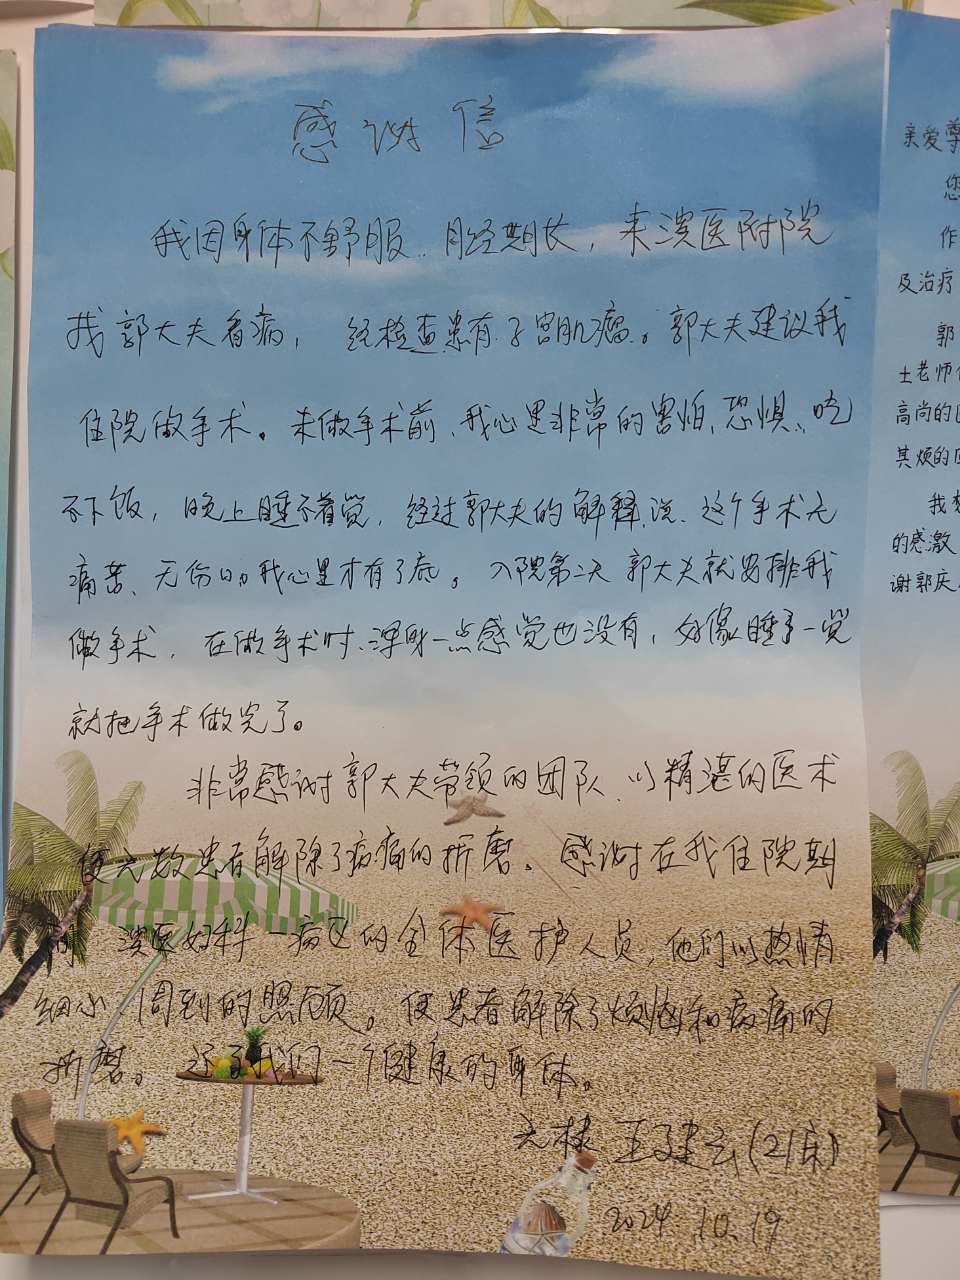 感谢信
我因身体不舒服、月经期长，来滨医附院
找郭大夫看病，经检查患有子宫肌瘤。郭大夫建议我
住院做手术。未做手术前、我心里非常的害怕、恐惧、吃
不下饭，晚上睡不着觉，经过郭大夫的解释说、这个手术无
痛苦、无伤口，我心里才有了底。入院第二天郭大夫就安排我
做手术，在做手术时、浑身一点感觉也没有，好像睡了一觉
就把手术做完了。
非常感谢郭大夫带领的团队、以精湛的医术
使无数患者解除了病痛的折磨。感谢在我住院期
间 滨医妇科一病区的全体医护人员，他们以热情
细心、周到的照顾。使患者解除了烦恼和病痛的
折磨。还了我们一个健康的身体。
无棣 王建云(21床)
2024.10.19
亲爱尊
您
作
及治疗
郭
士老师
高尚的医
其烦的
我
的感激
谢郭庆